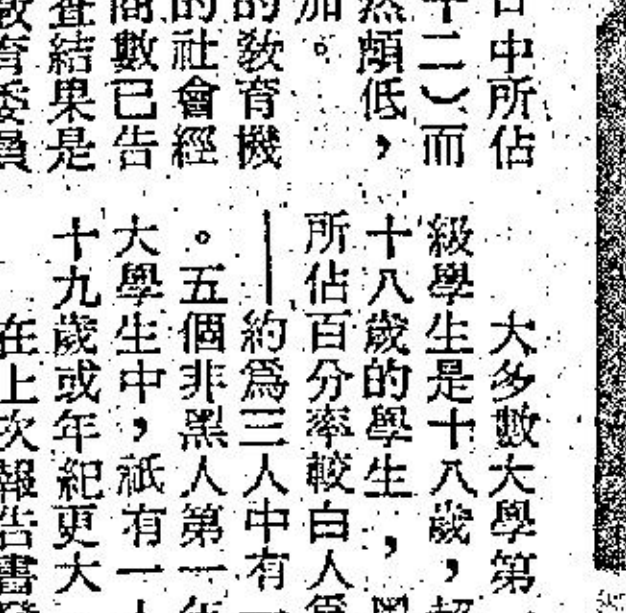 中所佔
十二）而
然頗低，
加。
的敎育機
的社會經
商數已告
查結果是
育委員
大多數大學第
級學生是十八歲，超
十八歲的學生，黑
所佔百分率較白人爲
——約爲三人中有一
。五個非黑人第一年
大學生中，祇有一
十九歲或年紀更大
在上次報告書